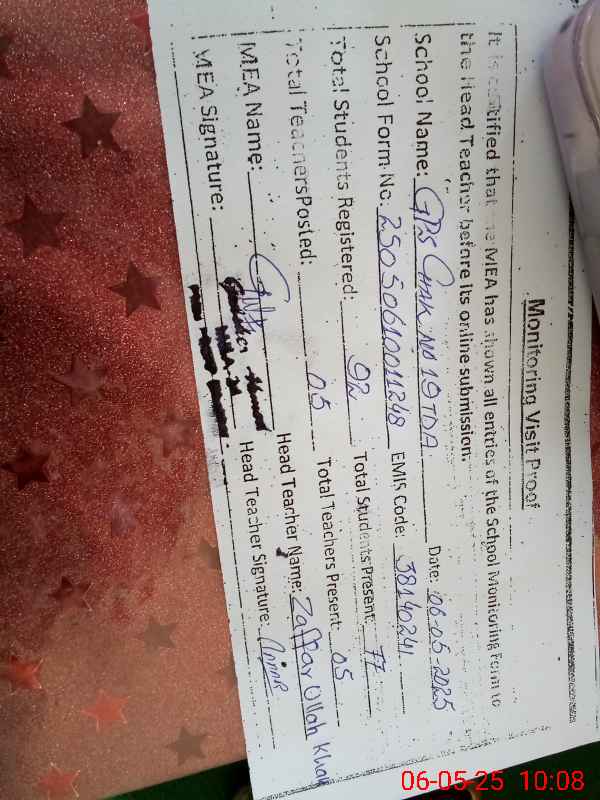 Monitoring Visit Proof
It is certified that the MEA has shown all entries of the School Monitoring Form to
the Head Teacher before its online submission.
School Name: GPS Chak No 19 TDA Date: 06-05-2025
School Form No: 25050610011248 EMIS Code: 38140241
Total Students Registered: 92 Total Students Present: 77
Total Teachers Posted: 05 Total Teachers Present: 05
MEA Name: Head Teacher Name: Zaffar Ullah Khan
MEA Signature: Head Teacher Signature:
06-05-25 10:08